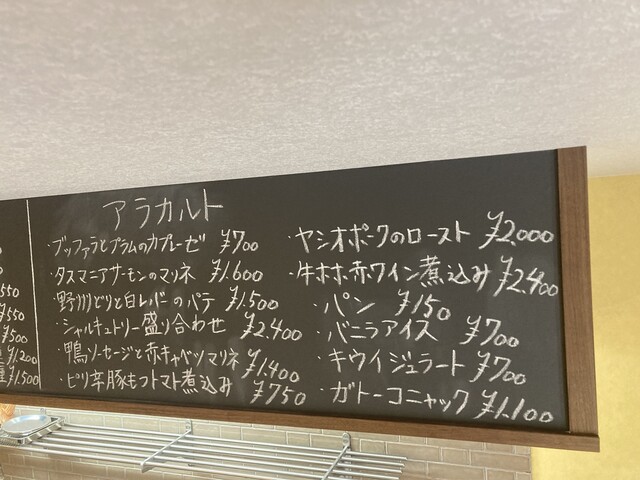 アラカルト
・ブッファラとプラムのカプレーゼ ¥700
・タスマニアサーモンのマリネ ¥1.600
・野州どりと白レバーのパテ ¥1.500
・シャルキュトリー盛り合わせ ¥2.400
・鴨ソーセージと赤キャベツマリネ ¥1.400
・ピリ辛豚もつトマト煮込み ¥750
・ヤシオポークのロースト ¥2.000
・牛ホホ赤ワイン煮込み ¥2.400
・パン ¥150
・バニラアイス ¥700
・キウイジェラート ¥700
・ガトーコニャック ¥1.100
550
¥550
¥500
¥1.200
¥1.500